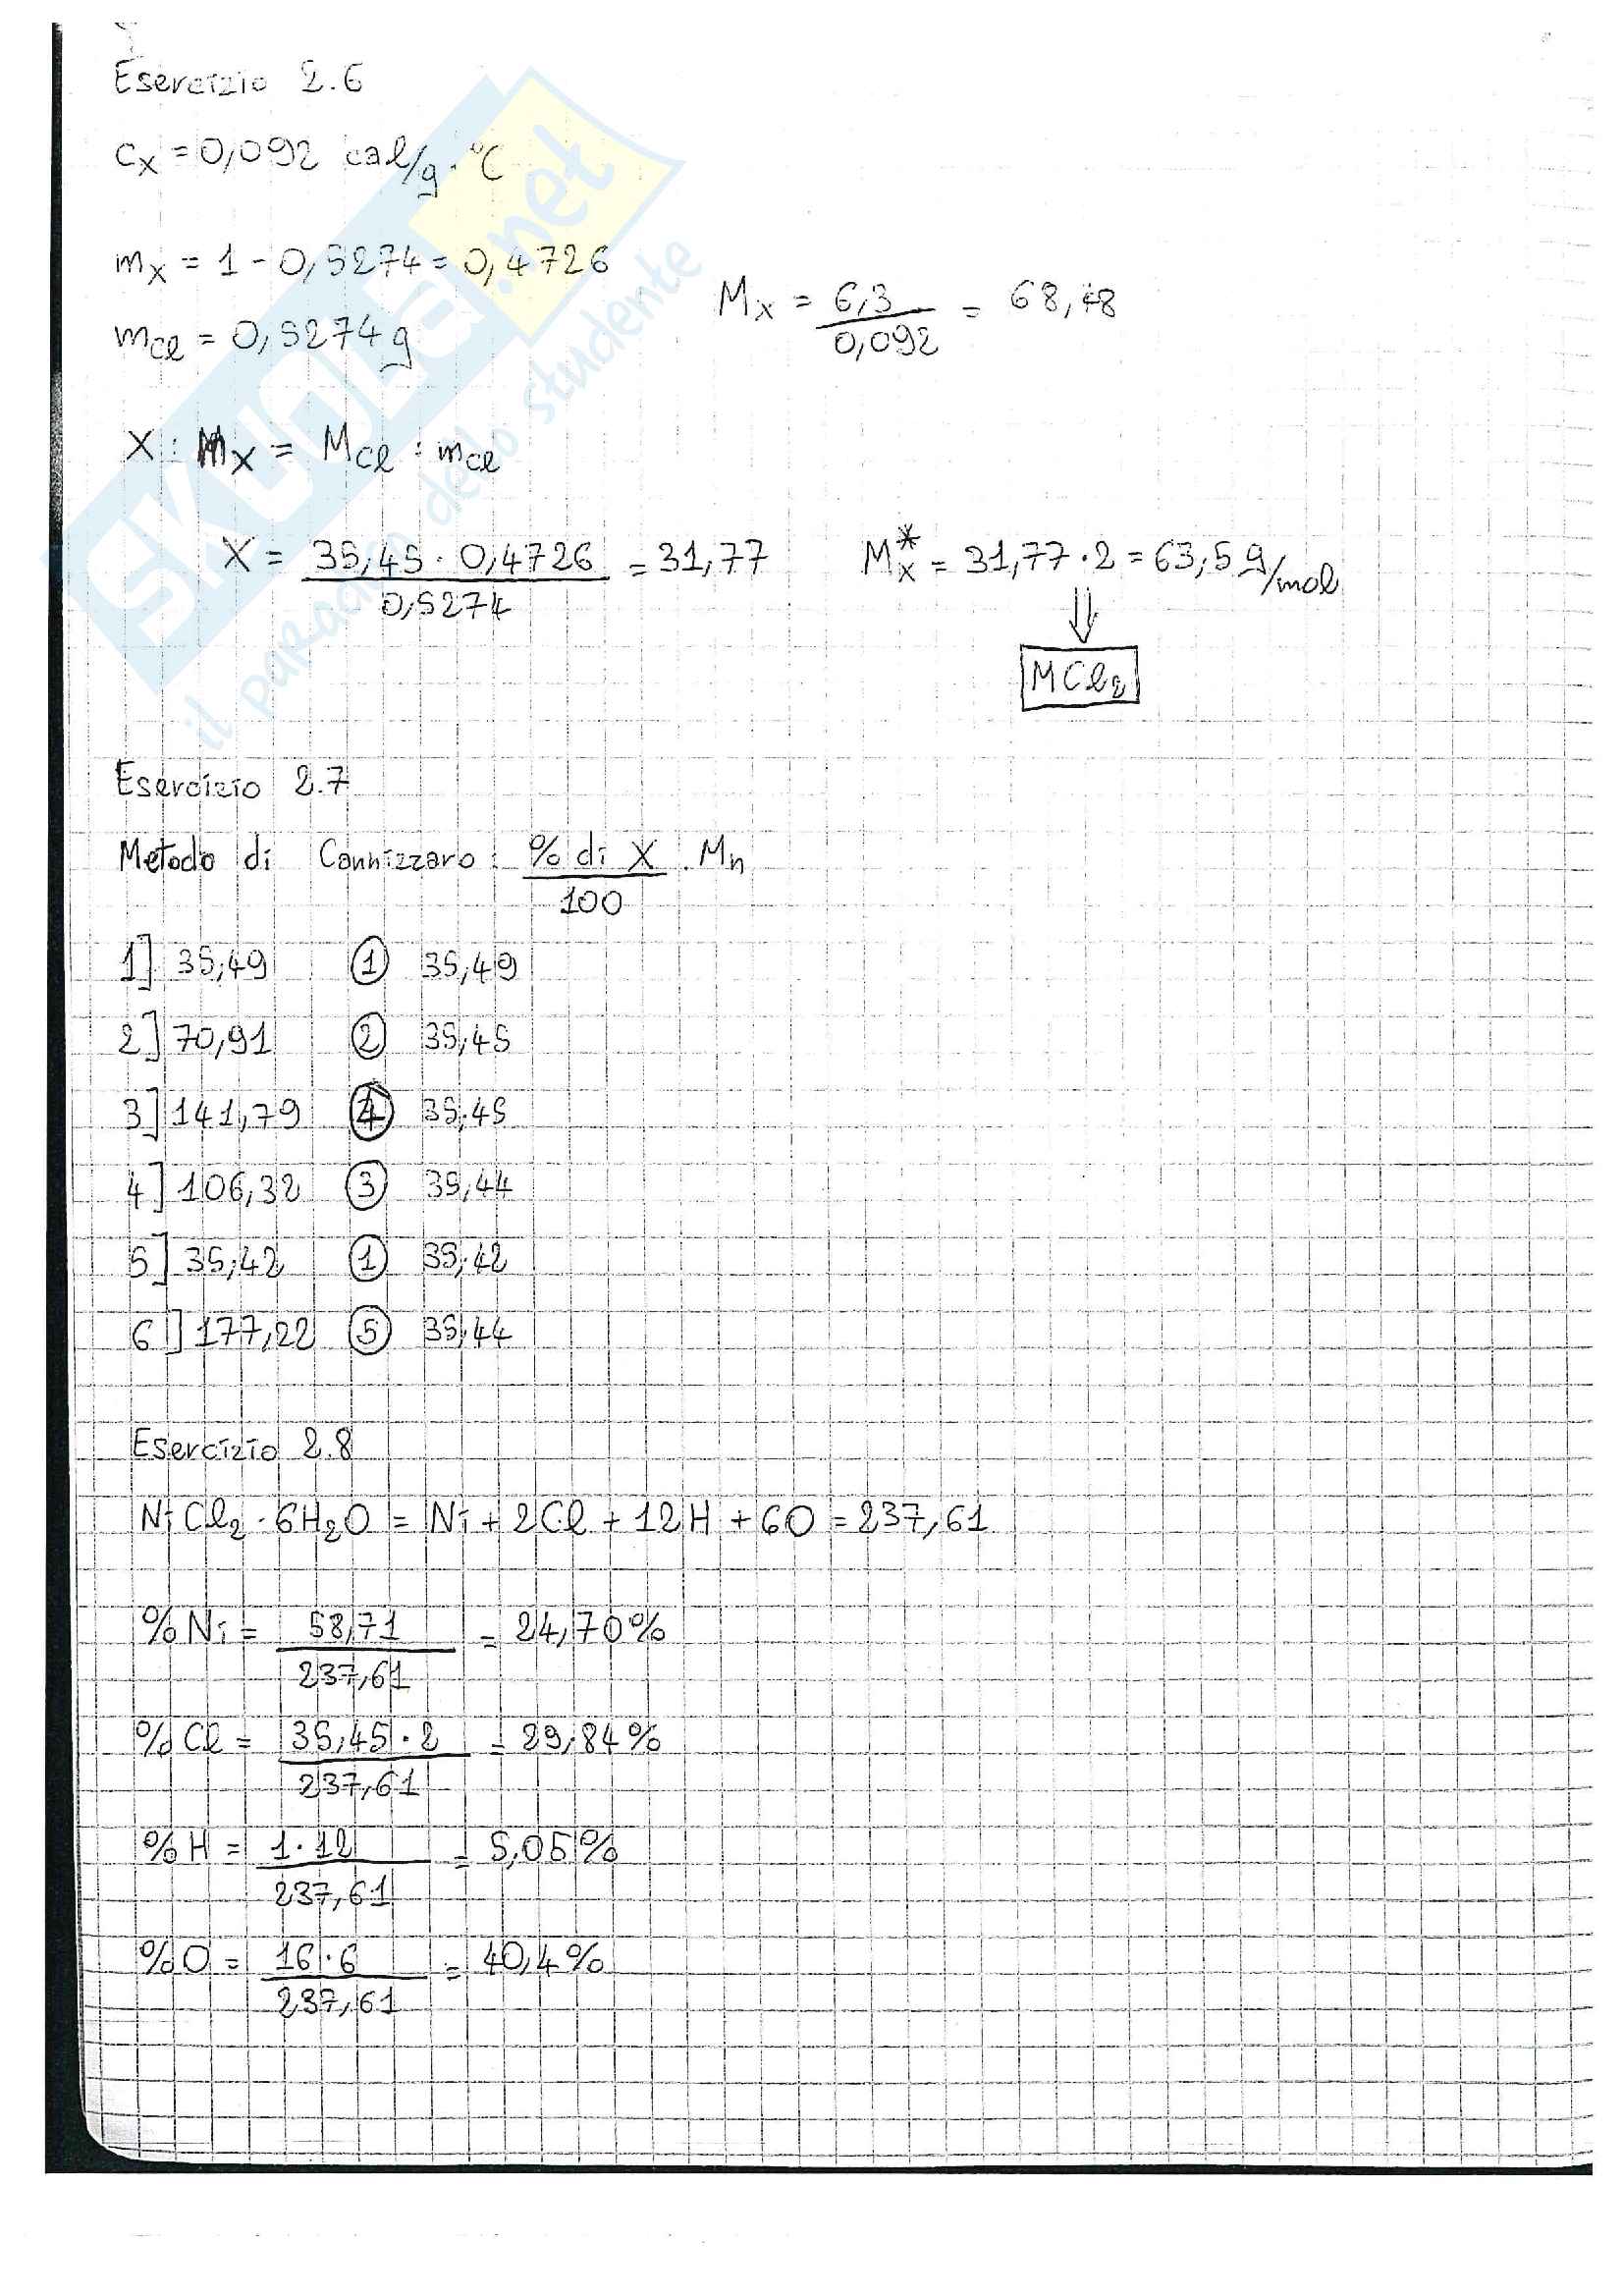 Esercizio 2.6
cx = 0,092 cal/g·°C
mx = 1 - 0,5274 = 0,4726
mCl = 0,5274 g
Mx = 6,3 / 0,092 = 68,48
X : Mx = MCl : mCl
X = 35,45 · 0,4726 / 0,5274 = 31,77
M*x = 31,77 · 2 = 63,5 g/mol
⇓
MCl2
Esercizio 2.7
Metodo di Cannizzaro: % di X / 100 · Mn
1] 35,49 ① 35,49
2] 70,91 ② 35,45
3] 141,79 ④ 35,45
4] 106,32 ③ 35,44
5] 35,42 ① 35,42
6] 177,22 ⑤ 35,44
Esercizio 2.8
NiCl2 · 6H2O = Ni + 2Cl + 12H + 6O = 237,61
%Ni = 58,71 / 237,61 = 24,70%
%Cl = 35,45 · 2 / 237,61 = 29,84%
%H = 1 · 12 / 237,61 = 5,05%
%O = 16 · 6 / 237,61 = 40,4%
SKUOLA.net
il paradiso dello studente